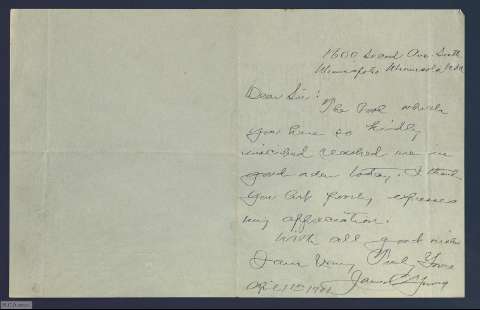 1600 Second Ave. South
Minneapolis Minnesota
Dear Sir:
The book which
you have so kindly
inscribed reached me in
good order today. I thank
you but poorly expresses
my appreciation.
With all good wishes
I am Very Truly Yours
James Young
April 1st